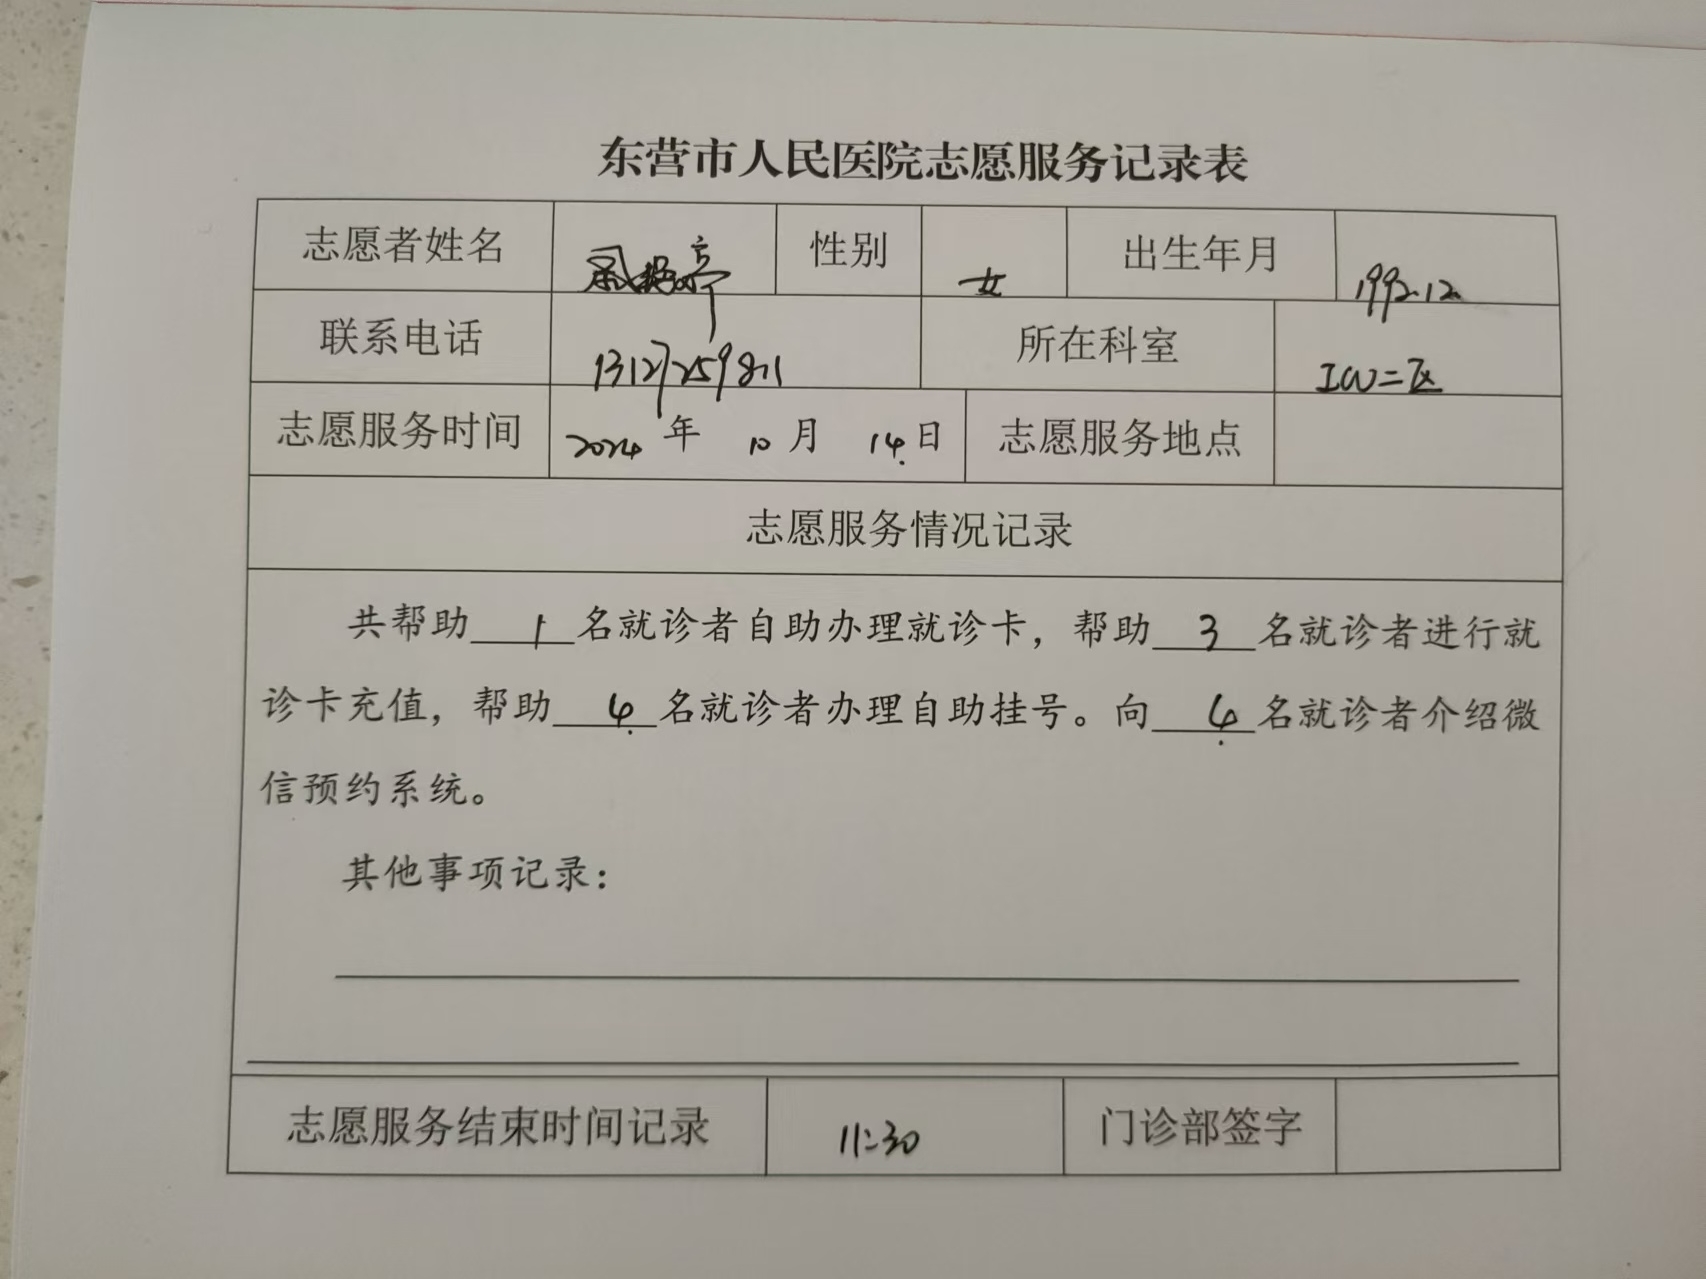 东营市人民医院志愿服务记录表
志愿者姓名 性别 女 出生年月 1992.12
联系电话 13127259811 所在科室 ICU二区
志愿服务时间 2024年 10月 14日 志愿服务地点
志愿服务情况记录
共帮助 1 名就诊者自助办理就诊卡，帮助 3 名就诊者进行就
诊卡充值，帮助 4 名就诊者办理自助挂号。向 4 名就诊者介绍微
信预约系统。
其他事项记录：
志愿服务结束时间记录 11:30 门诊部签字